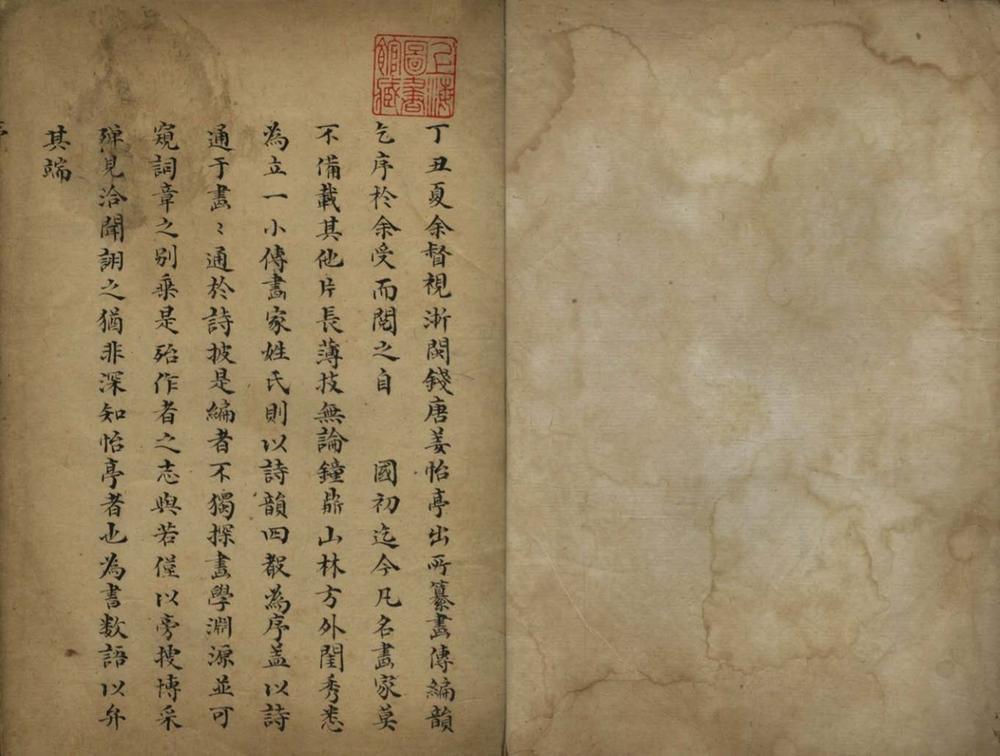 上海
圖書
館藏
丁丑夏余督視浙閩錢唐姜怡亭出所纂畫傳編韻
乞序於余受而閱之自 國初迄今凡名畫家莫
不備載其他片長薄技無論鐘鼎山林方外閨秀悉
為立一小傳畫家姓氏則以詩韻四散為序蓋以詩
通于畫〻通於詩披是編者不獨探畫學淵源並可
窺詞章之別乘是殆作者之志與若僅以旁搜博采
殫見洽聞詡之猶非深知怡亭者也為書数語以弁
其端